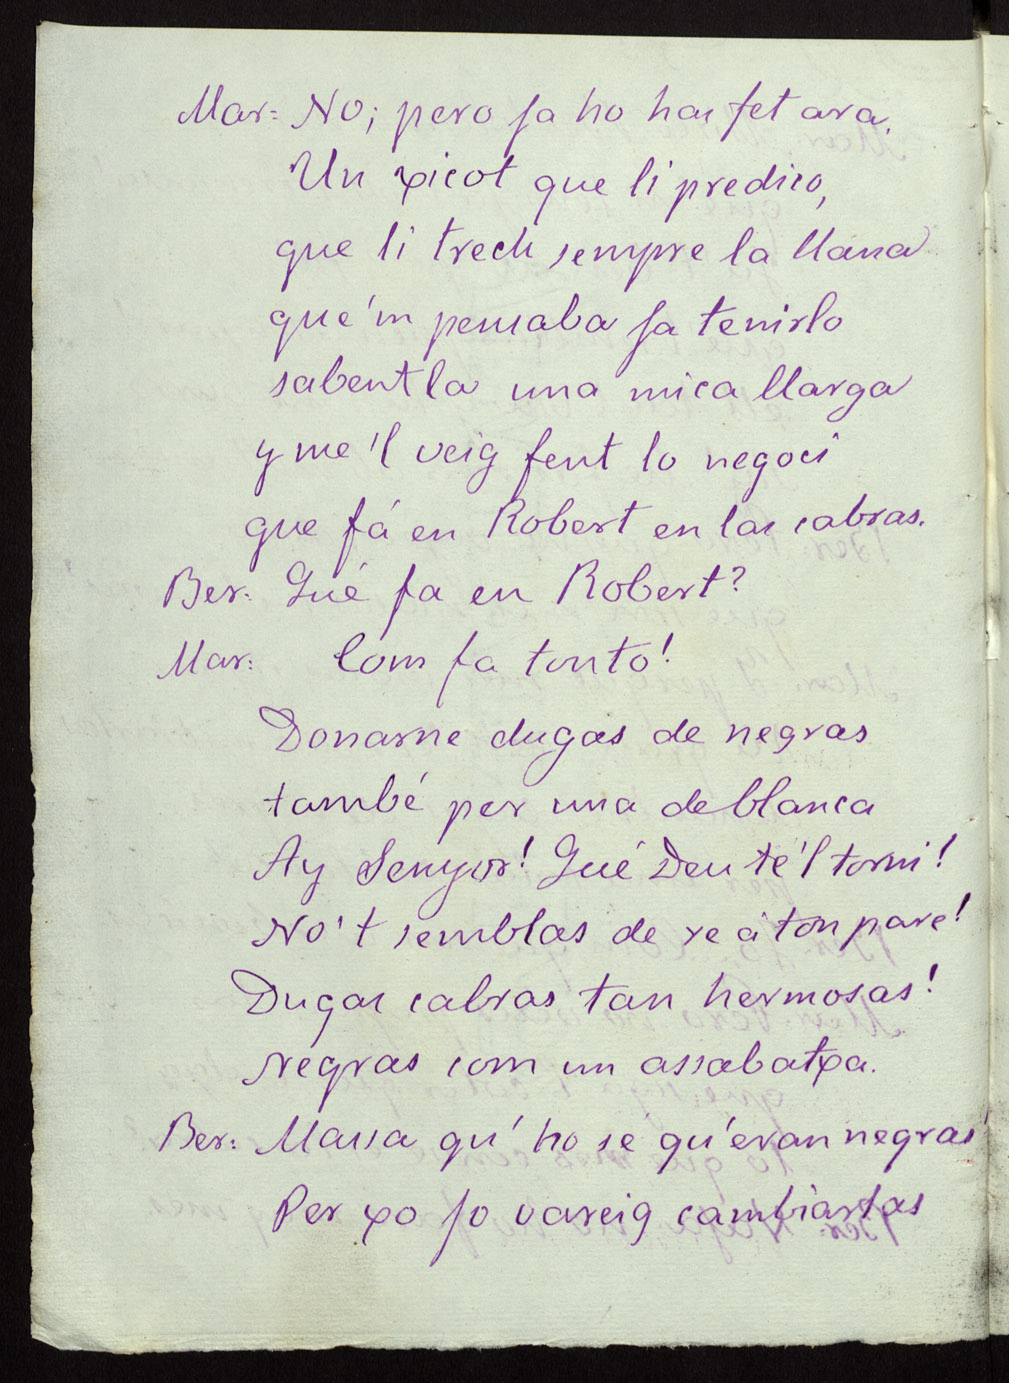 Mar: No; pero ja ho has fet ara.
Un xicot que li predico,
que li trech sempre la llana
que'm pensaba ja tenirlo
sabentla una mica llarga
y me'l veig fent lo negoci
que fá en Robert en las cabras.
Ber: Qué fa en Robert?
Mar: Com fa tonto!
Donarne dugas de negras
també per una de blanca
Ay Senyor! Qué Deu te'l torni!
No't semblas de re á ton pare!
Dugas cabras tan hermosas!
negras com un assabatxa.
Ber: Massa qu'ho sé qu'eran negras
Per xo jo vareig cambiarlas